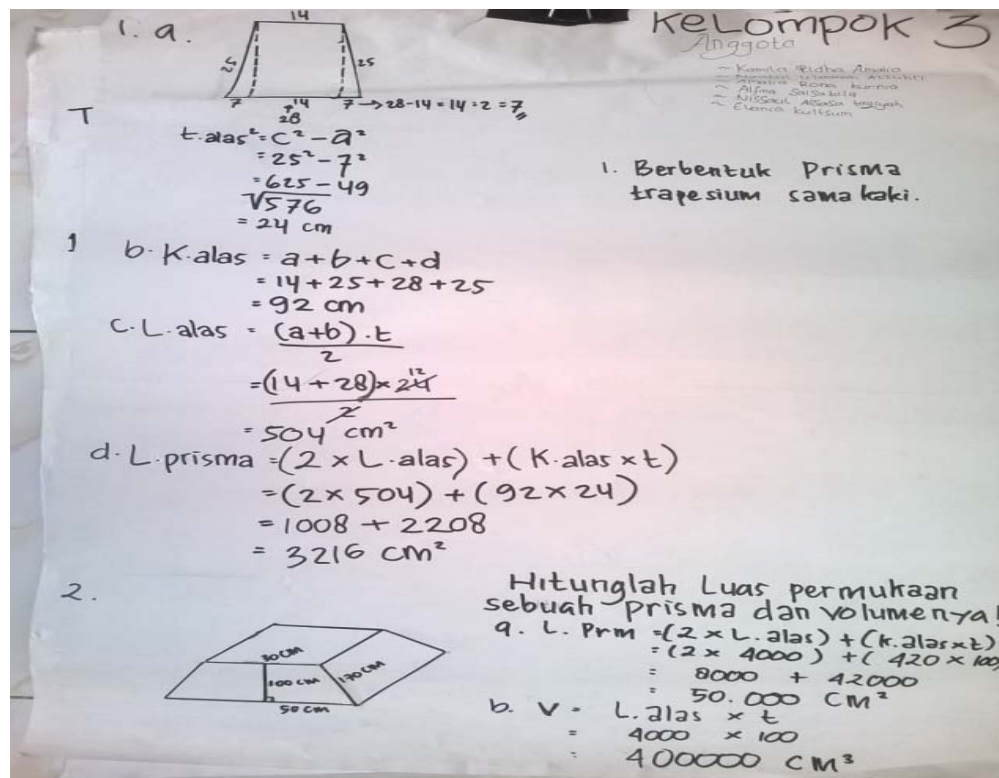 KELOMPOK 3
Anggota
~ Kamila Ridha Amalia
~ Alfina Salsabila
1. a.
14
25 25
7 14 7 → 28-14 = 14 : 2 = 7
28
T
t.alas² = c² - a²
= 25² - 7²
= 625 - 49
√576
= 24 cm
1. Berbentuk Prisma
trapesium sama kaki.
1
b. K.alas = a+b+c+d
= 14 + 25 + 28 + 25
= 92 cm
c. L.alas = (a+b) . t
2
= (14 + 28) x 24 12
2
= 504 cm²
d. L.prisma = (2 x L.alas) + (K.alas x t)
= (2 x 504) + (92 x 24)
= 1008 + 2208
= 3216 cm²
2.
30 CM
100 CM
170 CM
50 CM
Hitunglah Luas permukaan
sebuah prisma dan volumenya!
a. L. Prm = (2 x L.alas) + (K.alas x t)
= (2 x 4000) + ( 420 x 100
= 8000 + 42000
= 50.000 CM²
b. V = L.alas x t
= 4000 x 100
= 400000 CM³